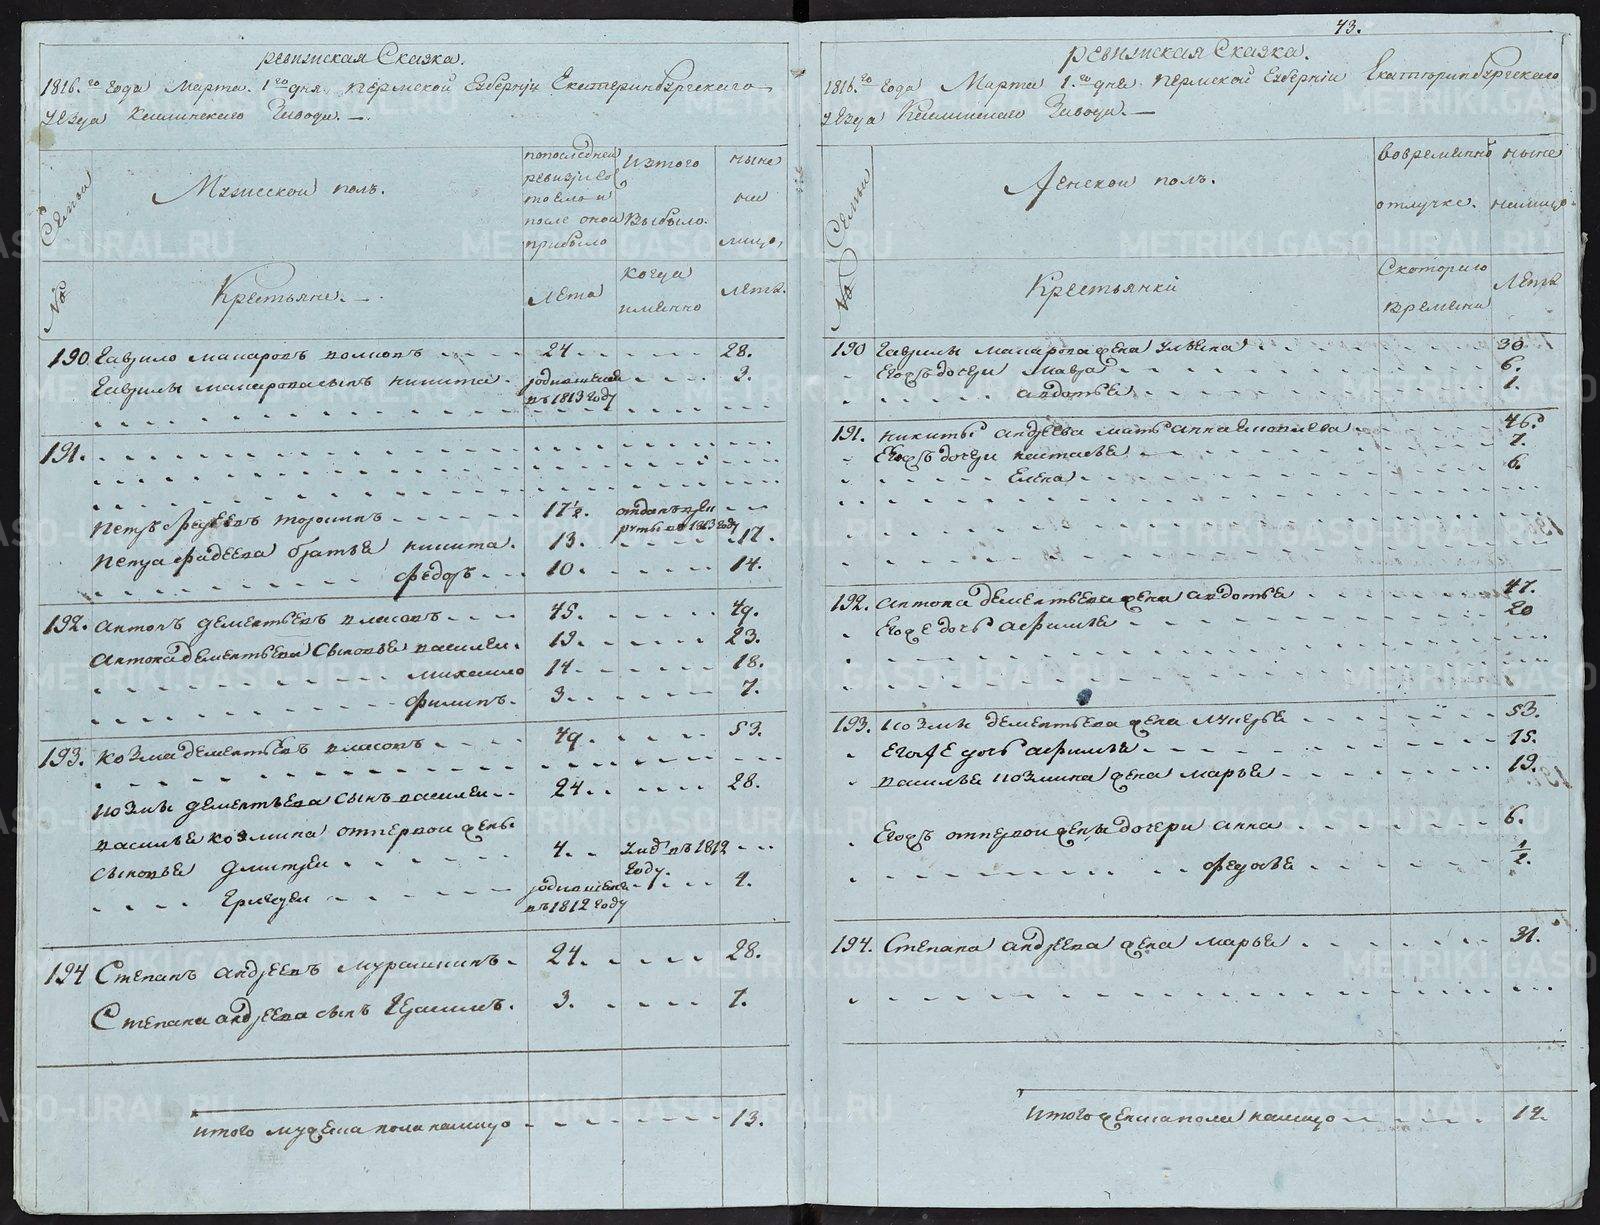 43.
ревижская Сказка.
1816.го года Марта 1го дня Пермской Губернiи Екатеринбургскаго
уезда Каслинскаго Завода.
Семьи
№
Мужеской полъ.
Крестьяне.
попоследней
ревизiи со
стояло и
после оной
прибыло
Лета
Изтого
Выбыло.
когда
имянно
ныне
на
лицо,
Лета.
190 Гаврило Макаровъ 24 28.
Гаврилы Макарова сынъ Никита родился въ 1813 году 3.
191.
Петръ Фадеевъ 17½. отданъ в рекруты въ 1813 году
Петра Фадеева братья Никита. 13. 17.
Федоръ 10. 14.
192. Антонъ Дементьевъ Власовъ 45. 49.
Антона Дементьева Сыновья Василей. 19. 23.
Михайло 14. 18.
Филипъ. 3. 7.
193. Козма Дементьевъ Власовъ 49. 53.
Козмы Дементьева Сынъ Василей 24. 28.
Василья Козмина отпервой жены
сыновья Дмитрей 4. 1812 году.
родился въ 1812 году 4.
194 Степанъ Андреевъ Мурашкинъ. 24. 28.
Степана Андреева сынъ 3. 7.
Итого мужеска пола налицо 13.
ревижская Сказка.
1816.го года Марта 1.го дня Пермской Губернiи Екатеринбургскаго
уезда Каслинскаго Завода.
Семьи
№
Женской полъ.
Крестьянки
Вовременной
отлучке.
Скотораго
времени
ныне
налицо.
Лета
190 Гаврилы Макарова жена Ульяна 30.
Егожъ дочери Мавра 6.
Авдотья 1.
191. Никиты Андреева мать Анна 46.
Егожъ дочери Настасья 7.
Елена 6.
192. Антона Дементьева жена Авдотья 47.
Егоже дочь Афимья 20
193. Козмы Дементьева жена Лукерья 53.
Егоже дочь Афимья 15.
Василья Козмина жена Марья 19.
Егожъ отпервой жены дочери Анна 6.
Федосья ½.
194. Степана Андреева жена Марья 31.
Итого женска пола налицо 14.
METRIKI.GASO-URAL.RU